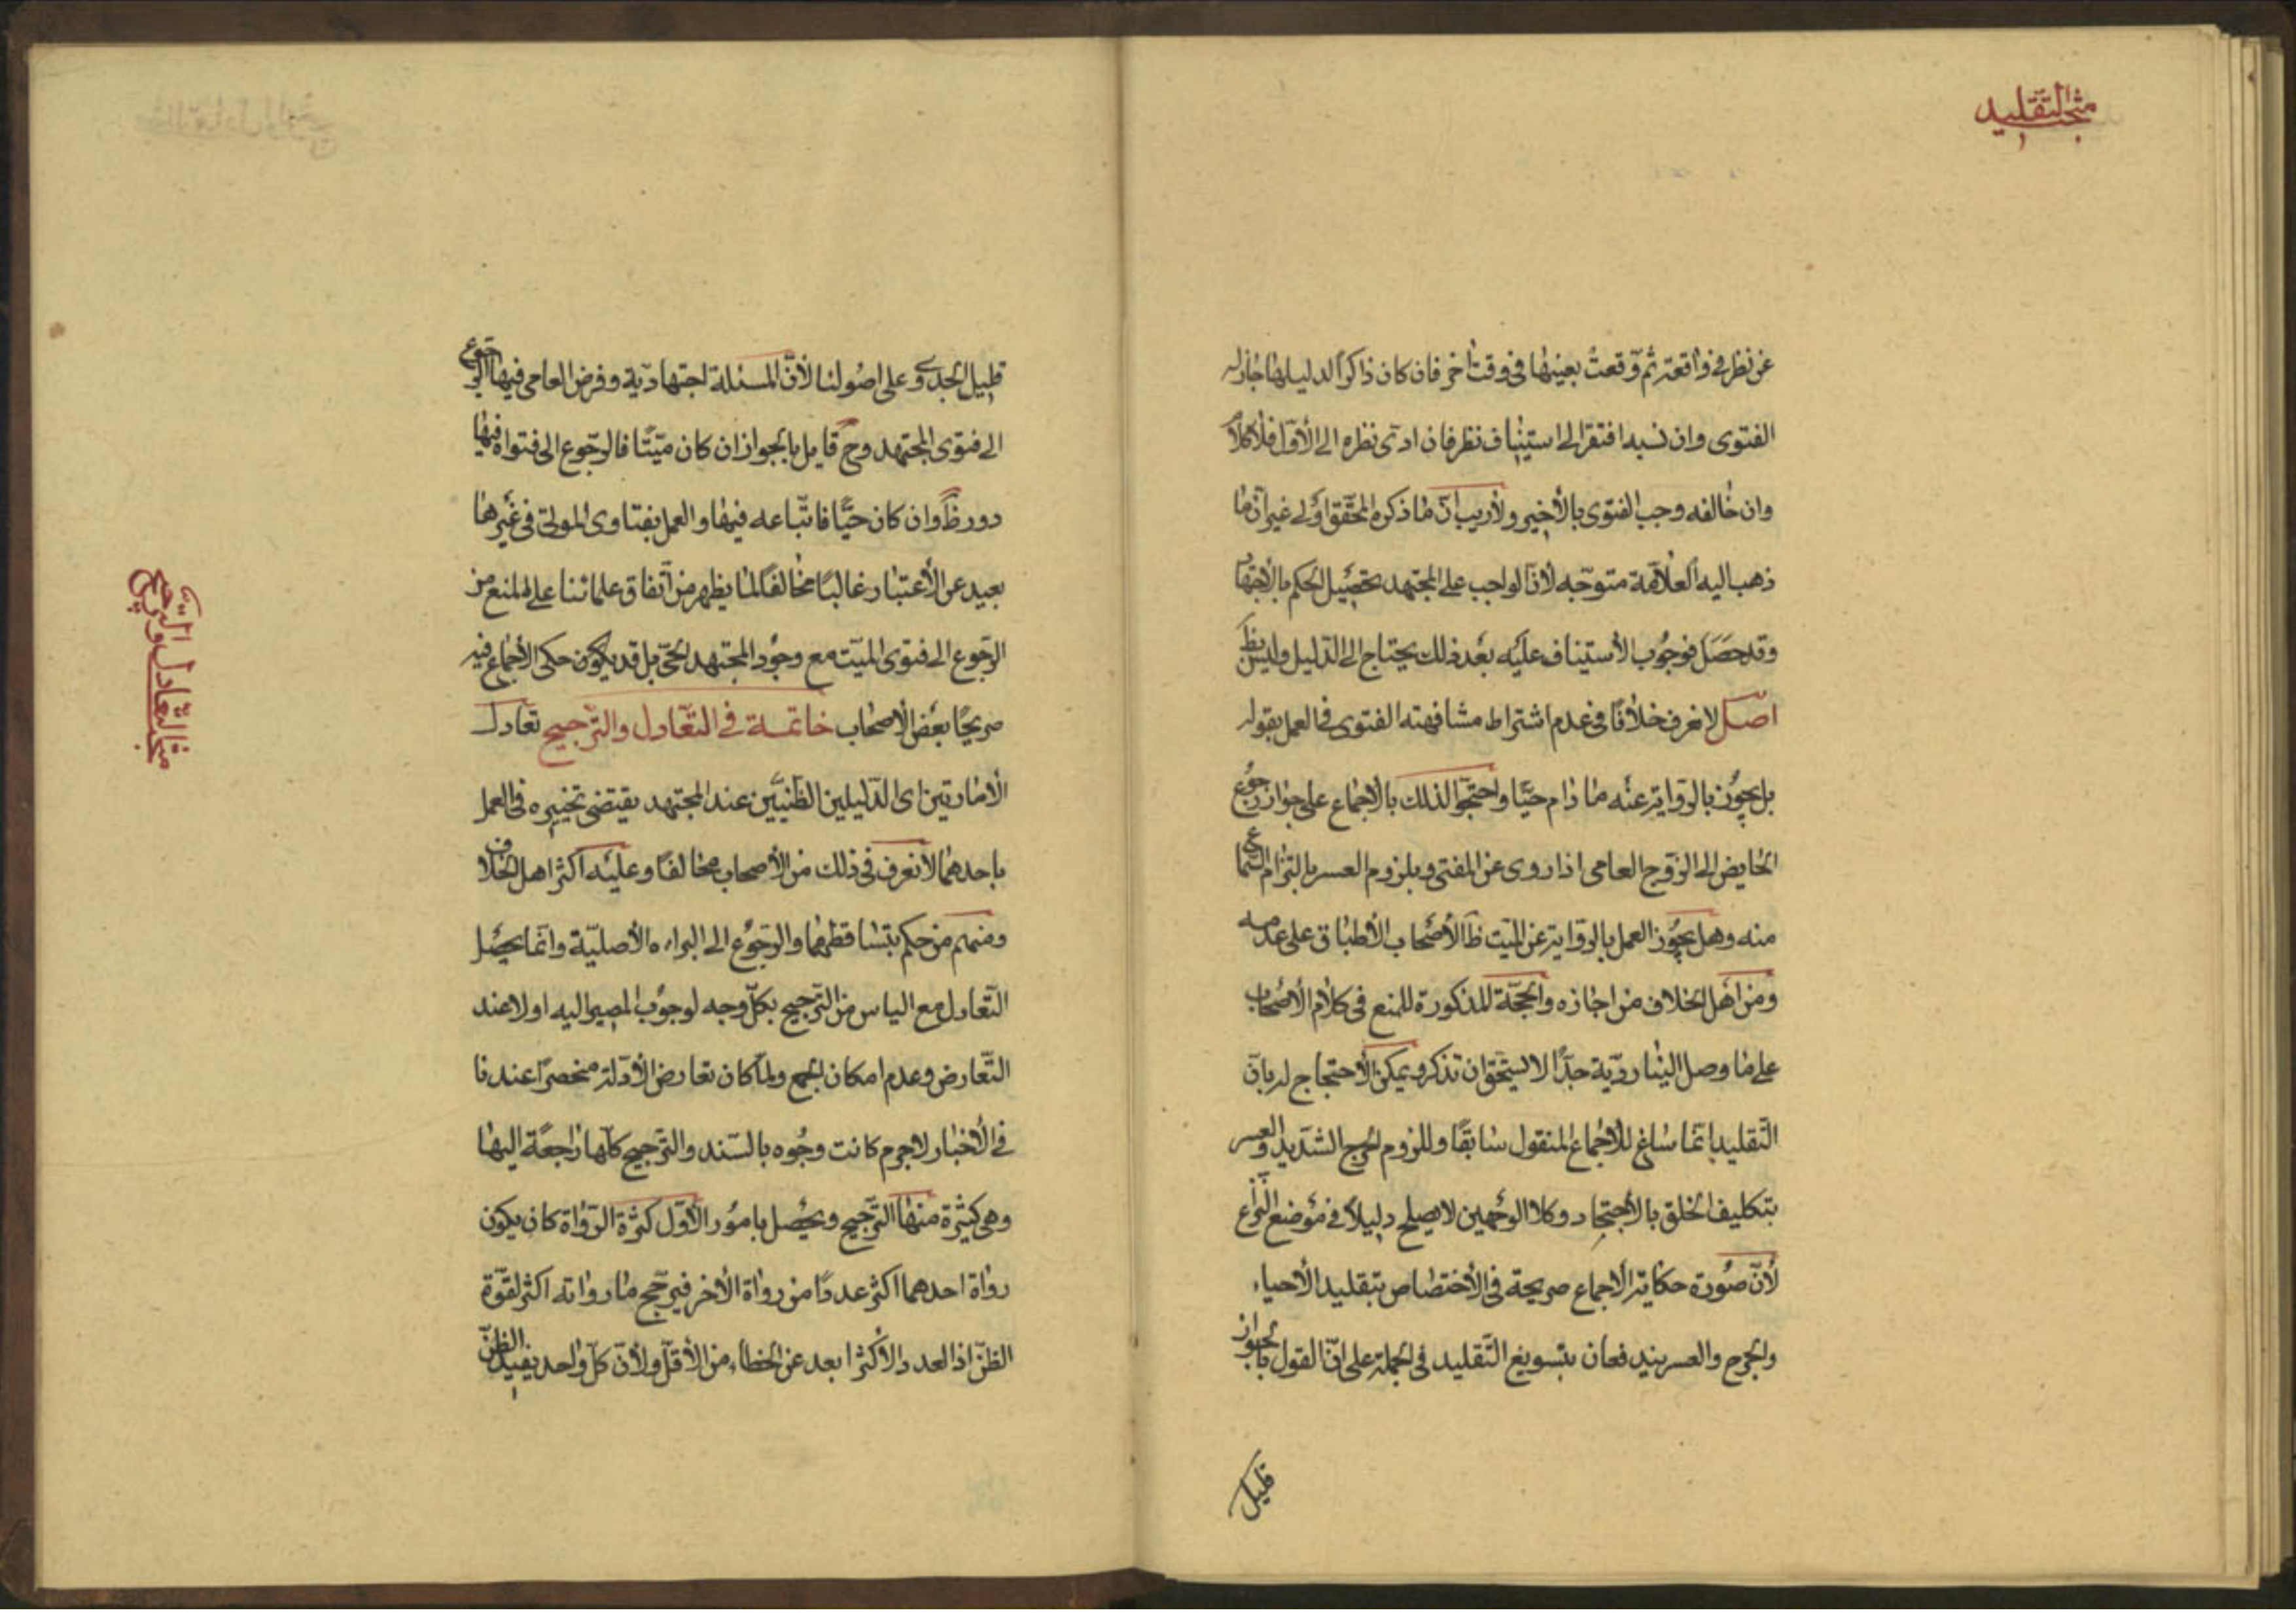 مبحث التقليد
عن نظر في واقعة ثم وقعت بعينها في وقت اخر فان كان ذاكرا لدليلها جاز له
الفتوى وان نسيه افتقر الى استيناف نظر فان ادى نظره الى الأول فلا كلام
وان خالفه وجب الفتوى بالأخير ولا ريب ان ما ذكره المحقق اولى غير ان ما
ذهب اليه العلامة متوجه لان الواجب على المجتهد تحصيل الحكم بالاجتهاد
وقد حصل فوجوب الأستيناف عليه بعد ذلك يحتاج الى الدليل وليس بظ
اصل لا نعرف خلافا في عدم اشتراط مشافهته الفتوى في العمل بقوله
بل يجوز بالرواية عنه ما دام حيا واحتجوا لذلك بالأجماع على جواز رجوع
الحايض الى الزوج العامي اذا روى عن المفتي وبلزوم العسر بالتزام السماع
منه وهل يجوز العمل بالرواية عن الميت ظ الأصحاب الأطباق على عدمه
ومن اهل الخلاف من اجازه والحجة المذكورة للمنع في كلام الأصحاب
على ما وصل الينا رديّة جدا لا يستحق ان تذكر ويمكن الأحتجاج له بان
التقليد انما ساغ للأجماع المنقول سابقا وللزوم الحرج الشديد والعسر
بتكليف الخلق بالأجتهاد وكلا الوجهين لا يصلح دليلا في موضع النزاع
لأن صورة حكاية الأجماع صريحة في الأختصاص بتقليد الأحياء
والحرج والعسر يندفعان بتسويغ التقليد في الجملة على ان القول بالجواز
قليل
قليل الجدوى على اصولنا لأن المسئلة اجتهادية وفرض العامي فيها الرجوع
الى فتوى المجتهد وح قايل بالجواز ان كان ميتا فالرجوع الى فتواه فيها
دور ظ وان كان حيا فاتباعه فيها والعمل بفتاوى الموتى في غيرها
بعيد عن الأعتبار غالبا مخالفا لما يظهر من اتفاق علمائنا على المنع من
الرجوع الى فتوى الميت مع وجود المجتهد الحي بل قد يكون حكى الأجماع فيه
صريحا بعض الأصحاب خاتمة في التعادل والترجيح تعادل
الأمارتين اى الدليلين الظنيين عند المجتهد يقتضى تخييره في العمل
باحدهما لا نعرف في ذلك من الأصحاب مخالفا وعليه اكثر اهل الخلاف
ومنهم من حكم بتساقطهما والرجوع الى البراءه الأصلية وانما يحصل
التعادل مع الياس من الترجيح بكل وجه لوجوب المصير اليه اولا عند
التعارض وعدم امكان الجمع ولما كان تعارض الأدلة منحصرا عندنا
في الأخبار لاجرم كانت وجوه بالسند والترجيح كلها راجعة اليها
وهي كثيرة منها الترجيح ويحصل بامور الأول كثرة الرواة كان يكون
رواة احدهما اكثر عددا من رواة الأخر فيرجح ما رواته اكثر لقوة
الظن اذ العدد الأكثر ابعد عن الخطاء من الأقل ولأن كل واحد يفيد الظن
مبحث التعادل والترجيح